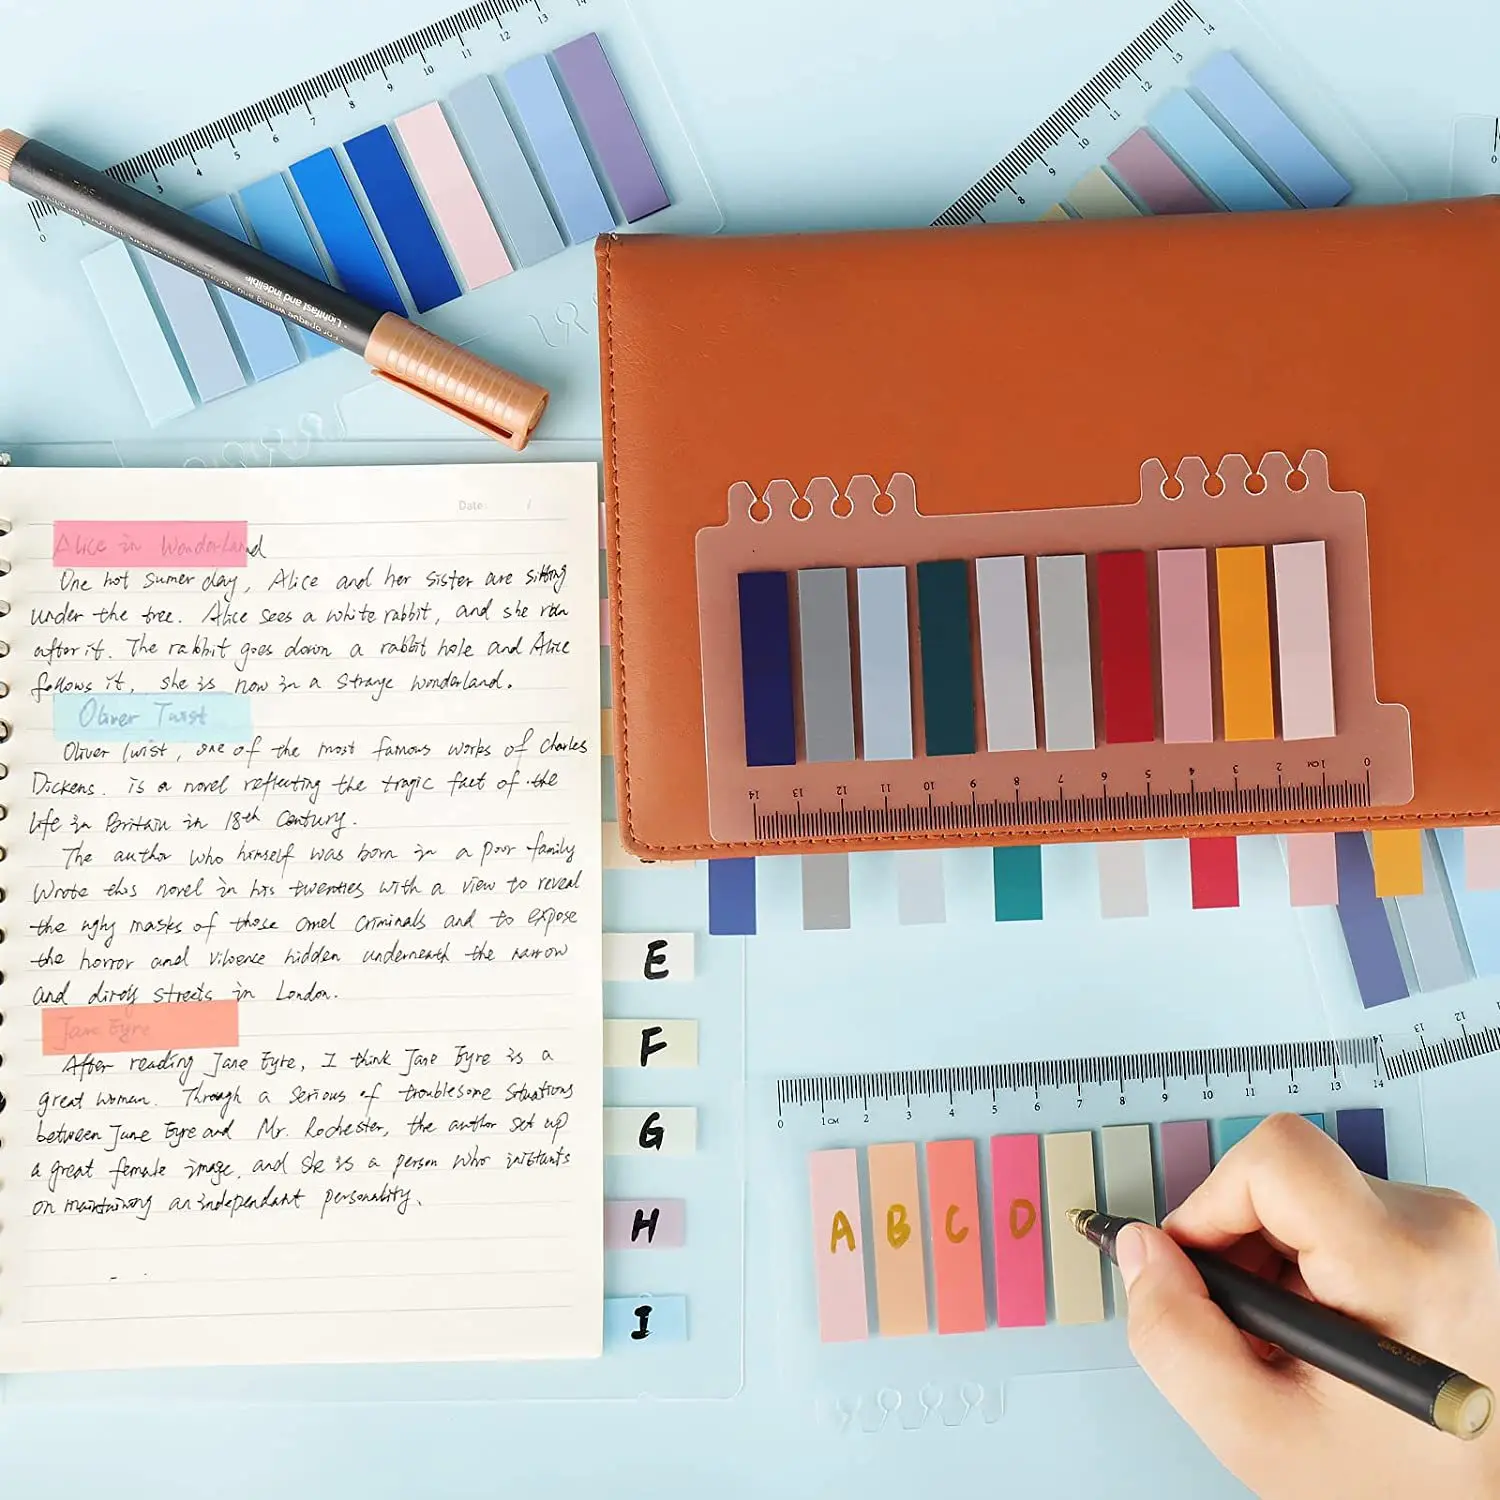 0 3 4 5 6 7 8 9 10 11 12 13 14
8 9 10 11 12 13 14
0
• For opaque writing and
• Lightfast and indelible
Date:
Alice in Wonderland
One hot sumer day, Alice and her sister are sitting
under the tree. Alice sees a white rabbit, and she run
after it. The rabbit goes down a rabbit hole and Alice
follows it, she is now in a strange wonderland.
Oliver Twist
Oliver Twist, one of the most famous works of Charles
Dickens. is a novel reflecting the tragic fact of the
life in Britain in 18th Century.
The author who himself was born in a poor family
Wrote this novel in his twenties with a view to reveal
the ugly masks of those criminals and to expose
the horror and violence hidden underneath the narrow
and dirty streets in London.
Jane Eyre
After reading Jane Eyre, I think Jane Eyre is a
great woman. Through a serious of troublesome situations
between Jane Eyre and Mr. Rochester, the author set up
a great female image, and she is a person who
on an independent personality.
14 13 12 11 10 9 8 7 6 5 4 3 2 1CM 0
E
F
G
H
I
0 1CM 2 3 4 5 6 7 8 9 10 11 12 13 14
13 12
A B C D